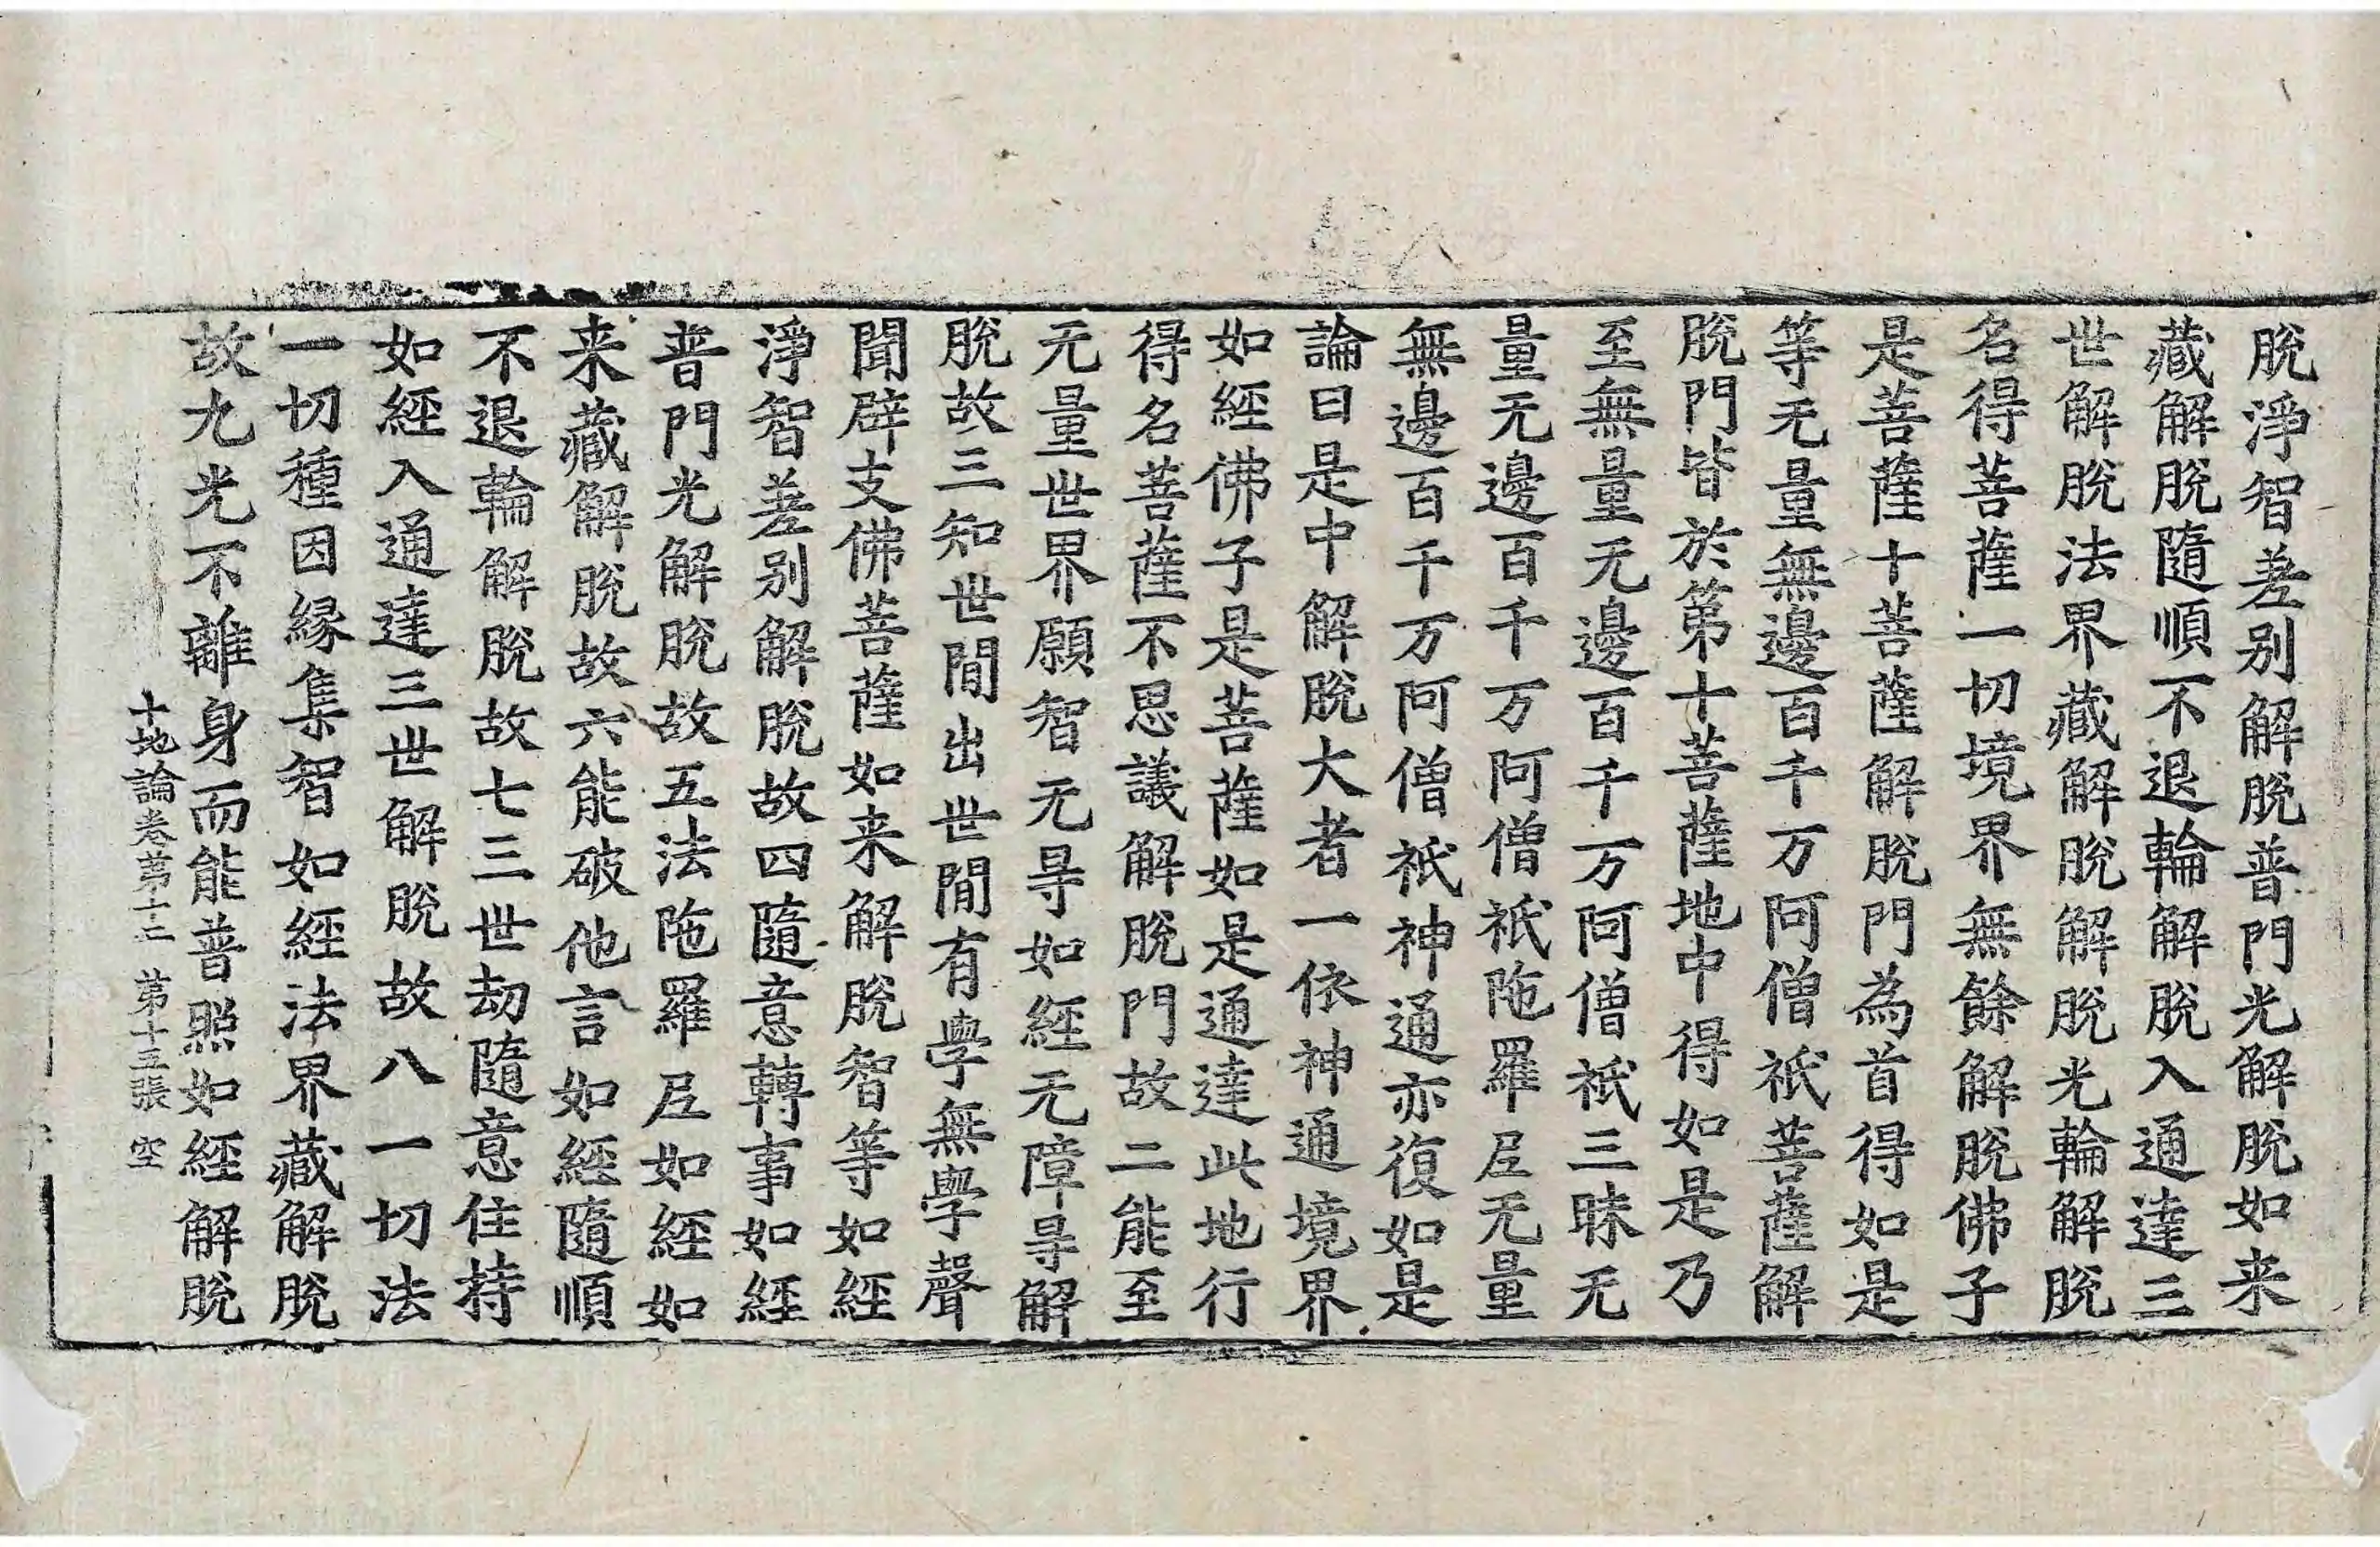 脫淨智差别解脫普門光解脫如来
藏解脫隨順不退輪解脫入通達三
世解脫法界藏解脫解脫光輪解脫
名得菩薩一切境界無餘解脫佛子
是菩薩十菩薩解脫門為首得如是
等无量無邊百千万阿僧祇菩薩解
脫門皆於第十菩薩地中得如是乃
至無量无邊百千万阿僧祇三昧无
量无邊百千万阿僧祇陁羅𡰱无量
無邊百千万阿僧祇神通亦復如是
論曰是中解脫大者一依神通境界
如經佛子是菩薩如是通達此地行
得名菩薩不思議解脫門故二能至
无量世界願智无㝵如經无障㝵解
脫故三知世間出世間有學無學聲
聞辟支佛菩薩如来解脫智等如經
淨智差别解脫故四隨意轉事如經
普門光解脫故五法陁羅𡰱如經如
来藏解脫故六能破他言如經隨順
不退輪解脫故七三世劫隨意住持
如經入通達三世解脫故八一切法
一切種因緣集智如經法界藏解脫
故九光不離身而能普照如經解脫
十地論卷第十二 第十三張 空